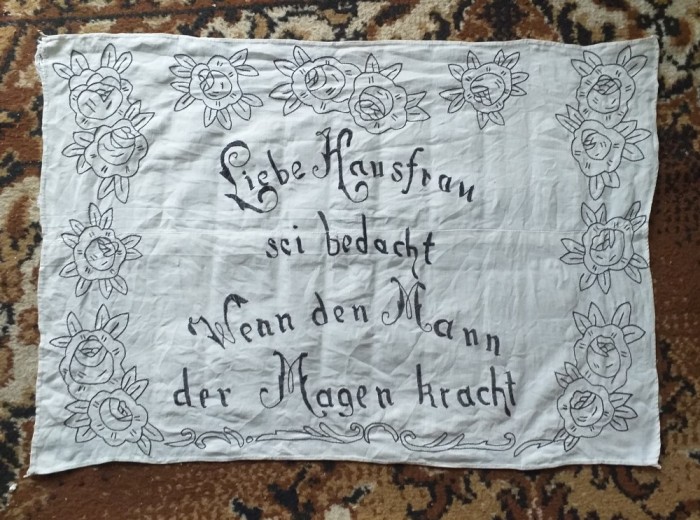 Liebe Hausfrau
sei bedacht
Wenn den Mann
der Magen kracht